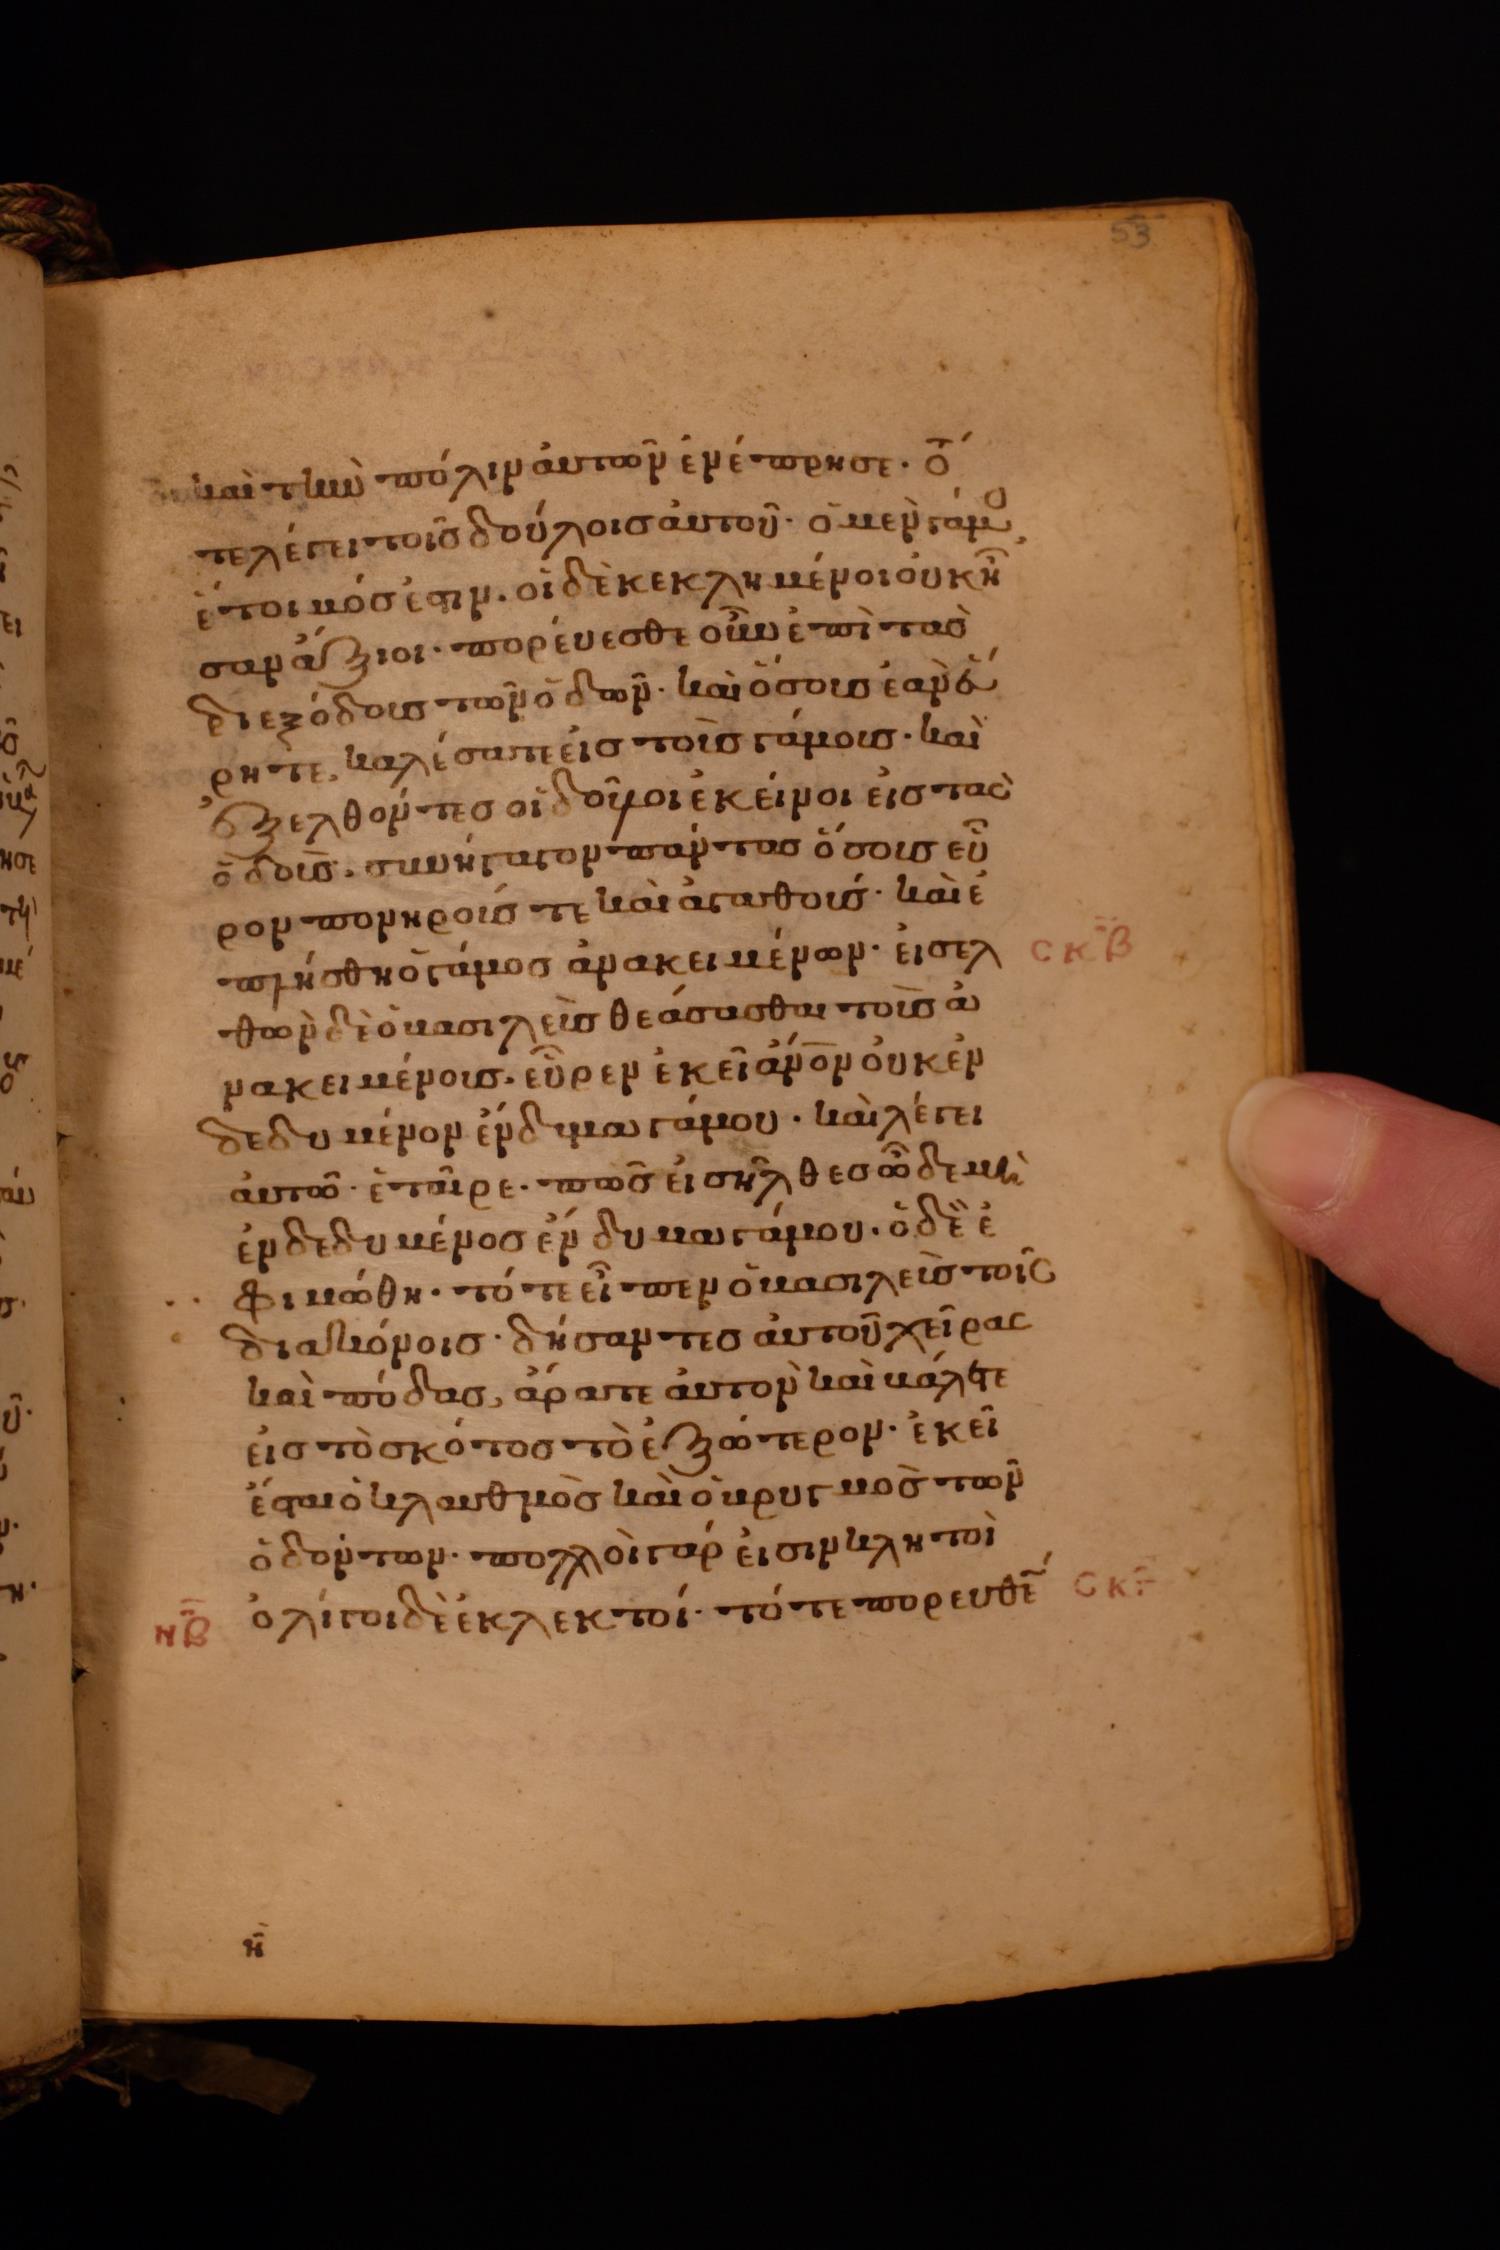 53
καὶ τὴν πόλιν αὐτῶν ἐνέπρησε· ὅτ
τε λέγει τοῖς δούλοις αὐτοῦ· ὁ μὲν γάμο
ἕτοιμός ἐστιν· οἱ δὲ κεκλημένοι οὐκ ἦ
σαν ἄξιοι· πορεύεσθε οὖν ἐπὶ τὰς
διεξόδους τῶν ὁδῶν· καὶ ὅσους ἐὰν εὕ
ρητε, καλέσατε εἰς τοὺς γάμους· καὶ
ἐξελθόντες οἱ δοῦλοι ἐκεῖνοι εἰς τὰς
ὁδοὺς· συνήγαγον πάντας ὅσους εὗ
ρον πονηρούς τε καὶ ἀγαθούς· καὶ ἐ
πλήσθη ὁ γάμος ἀνακειμένων· εἰσελ σκβ
θὼν δὲ ὁ βασιλεὺς θεάσασθαι τοὺς ἀ
νακειμένους· εὗρεν ἐκεῖ ἄνον οὐκ ἐν
δεδυμένον ἔνδυμα γάμου· καὶ λέγει
αὐτῶ· ἑταῖρε· πῶς εἰσῆλθες ὧδε μὴ
ἐνδεδυμένος ἔνδυμα γάμου· ὁ δὲ ἐ
φιμώθη· τότε εἶπεν ὁ βασιλεὺς τοῖς
διακόνοις· δήσαντες αὐτοῦ χεῖρας
καὶ πόδας, ἄρατε αὐτὸν καὶ βάλετε
εἰς τὸ σκότος τὸ ἐξώτερον· ἐκεῖ
ἔσται ὁ κλαυθμὸς καὶ ὁ βρυγμὸς τῶν
ὀδόντων· πολλοὶ γάρ εἰσιν κλητοὶ
κβ ὀλίγοι δὲ ἐκλεκτοί· τότε πορευθέ σκγ
η